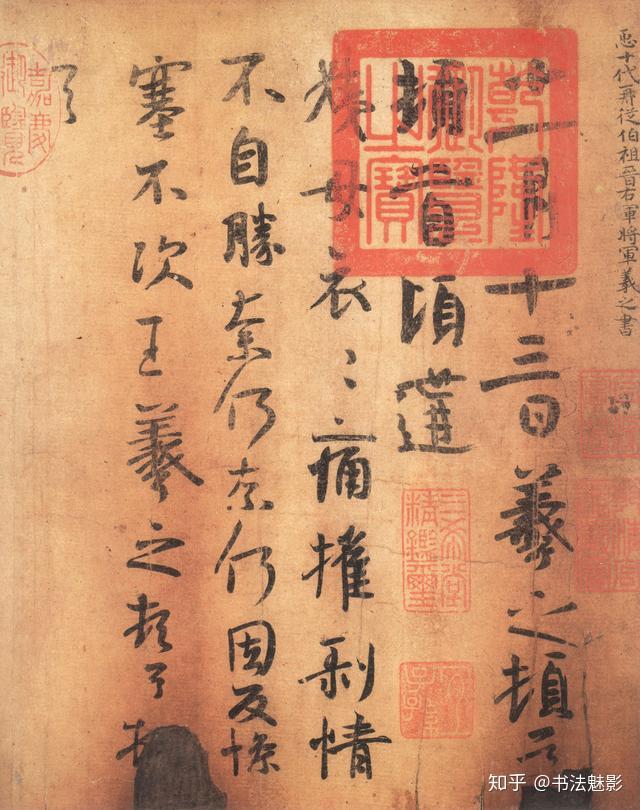 𢘑十代再從伯祖晉右軍將軍羲之書
十一月十三日羲之頓首
頓首頃遘
姨母哀〻痛摧剝情
不自勝奈何奈何因反慘
塞不次王羲之頓首頓
首
乾隆御覽之寶
三希堂精鑑璽
嘉慶御覽
知乎 @书法魅影